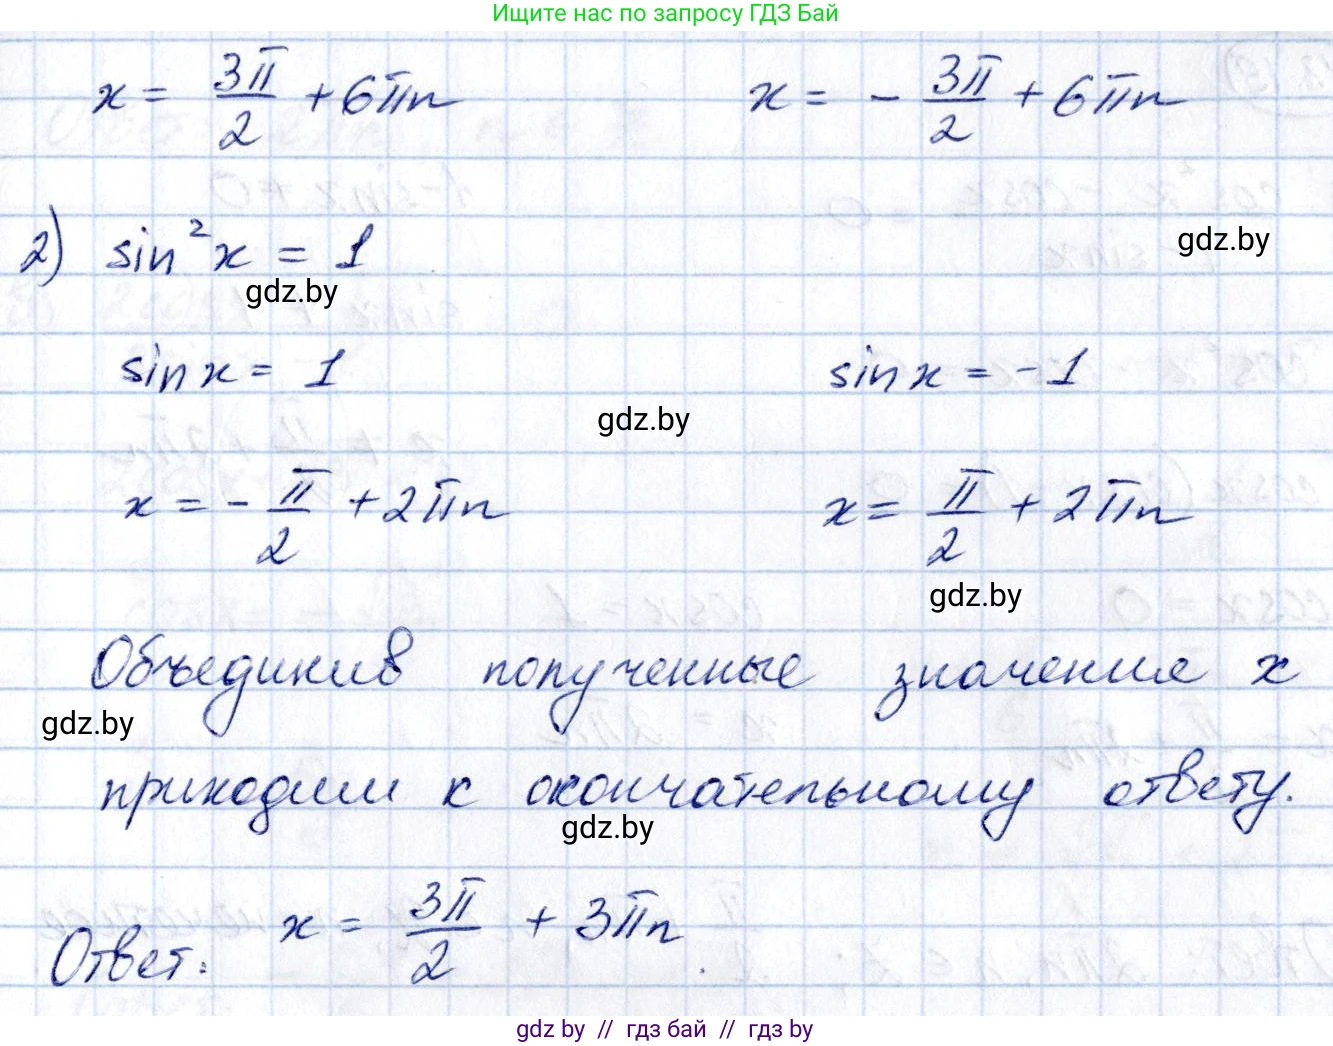 Ищите нас по запросу ГДЗ Бай
x = 3π/2 + 6πn x = - 3π/2 + 6πn
gdz.by
2) sin²x = 1
gdz.by
sin x = 1 sin x = -1
gdz.by
x = - π/2 + 2πn x = π/2 + 2πn
gdz.by
Объединив полученные значения x
gdz.by
приходим к окончательному ответу.
gdz.by
Ответ: x = 3π/2 + 3πn.
gdz by // гдз бай // гдз by